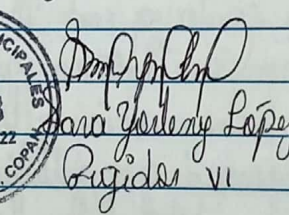 CIPALES
22
COPAN
Sara Yorleny López
Regidor VI